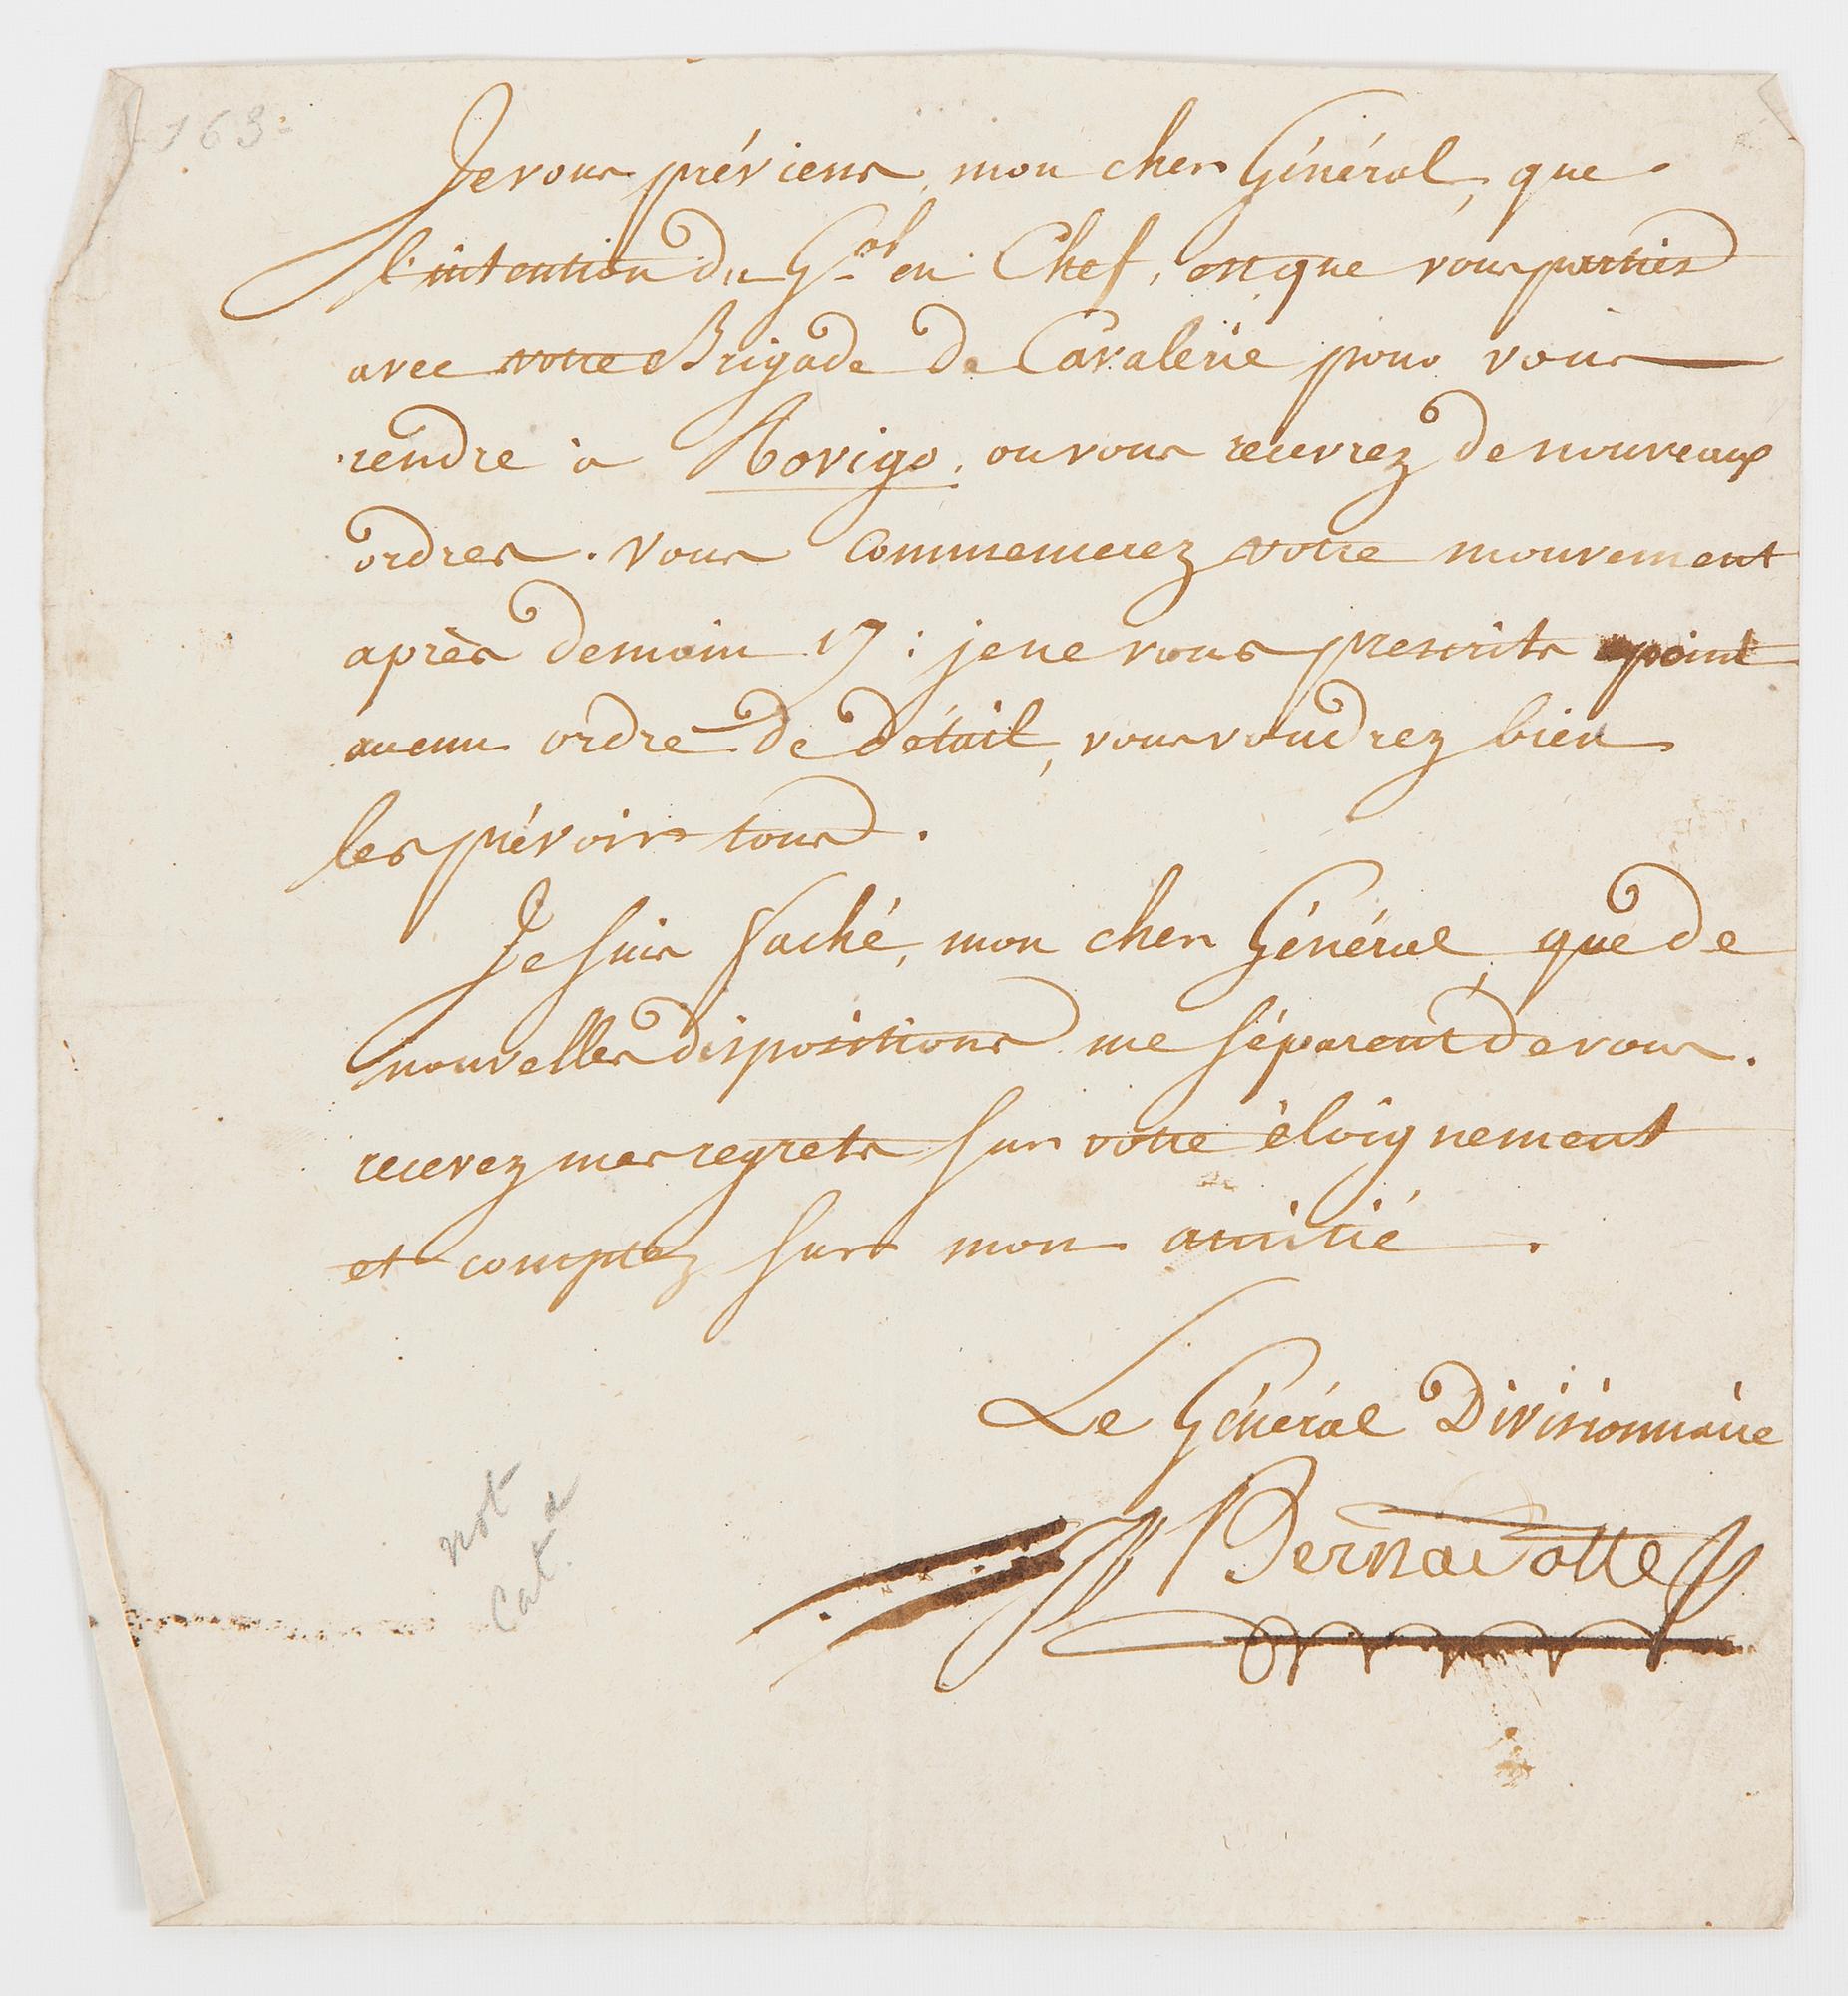 163
Je vous préviens, mon cher Général, que
l'intention du Gal en Chef, est que vous partiez
avec votre Brigade de Cavalerie pour vous
rendre à Rovigo, ou vous recevrez de nouveaux
ordres. Vous commencerez votre mouvement
après demain 17 : je ne vous prescrits point
aucun ordre de détail, vous voudrez bien
les prévoir tous.
Je suis faché, mon cher Général, que de
nouvelles dispositions me séparent de vous.
recevez mes regrets sur votre éloignement
et comptez sur mon amitié.
Le Général Divisionnaire
J Bernadotte
not
Cat